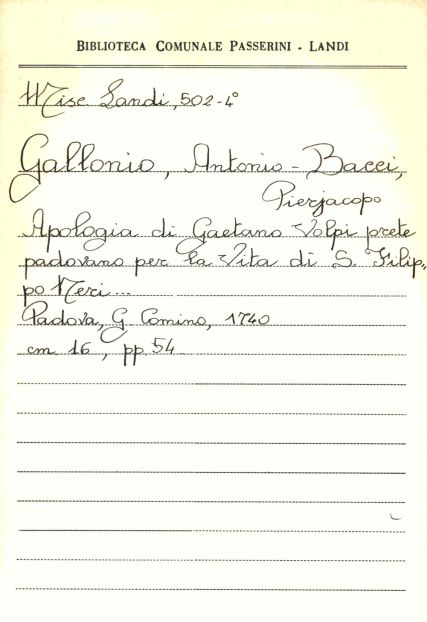 BIBLIOTECA COMUNALE PASSERINI - LANDI
Misc. Landi, 502-4°
Gallonio, Antonio - Bacci,
Pierjacopo
Apologia di Gaetano Volpi prete
padovano per la Vita di S. Filip„
po Neri...
Padova, G. Comino, 1740
cm 16, pp. 54